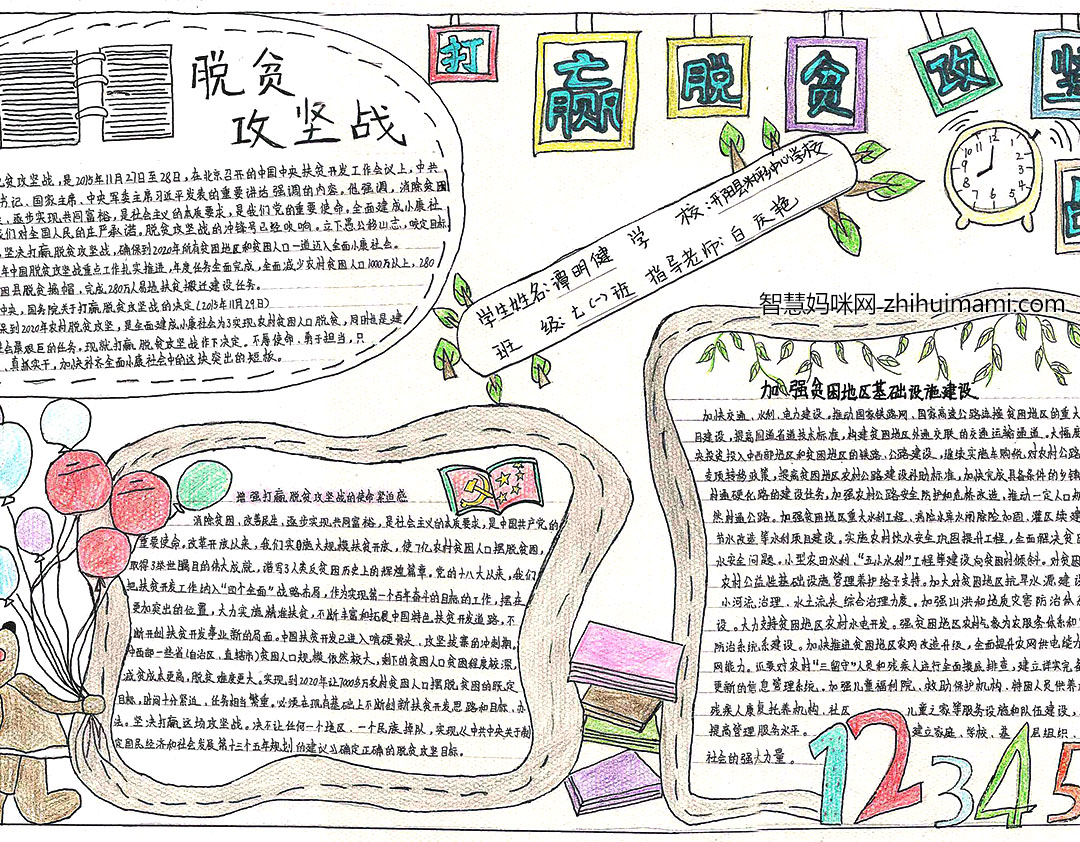 打赢脱贫攻坚
脱贫
攻坚战
贫攻坚战，是2015年11月27日至28日，在北京召开的中国中央扶贫开发工作会议上，中共
书记、国家主席、中央军委主席习近平发表的重要讲话强调的内容。他强调，消除贫困
、逐步实现共同富裕，是社会主义的本质要求，是我们党的重要使命，全面建成小康社
我们对全国人民的庄严承诺，脱贫攻坚战的冲锋号已经吹响。立下愚公移山志，咬定目标
，坚决打赢脱贫攻坚战，确保到2020年所有贫困地区和贫困人口一道迈入全面小康社会。
年中国脱贫攻坚战重点工作扎实推进，年度任务全面完成，全面减少农村贫困人口1000万以上，280
困县脱贫摘帽，完成280万人易地扶贫搬迁建设任务。
中央，国务院关于打赢脱贫攻坚战的决定（2015年11月29日）
到2020年农村脱贫攻坚，是全面建成小康社会为3实现农村贫困人口脱贫，同时也是建
社会最艰巨的任务，现就打赢脱贫攻坚战作下决定。不辱使命，勇于担当，只
真抓实干，加快补齐全面小康社会中的这块突出的短板。
学生姓名：谭明健 学校：开阳县米坪乡中心学校
班级：七（一）班 指导老师：白庆艳
智慧妈咪网-zhihuimami.com
增强打赢脱贫攻坚战的使命紧迫感
消除贫困，改善民生，逐步实现共同富裕，是社会主义的本质要求，是中国共产党的
重要使命。改革开放以来，我们实施大规模扶贫开放，使7亿农村贫困人口摆脱贫困，
取得3举世瞩目的伟大成就，谱写3人类反贫困历史上的辉煌篇章。党的十八大以来，我们
把扶贫开发工作纳入“四个全面”战略布局，作为实现第一个百年奋斗的目标的工作，摆在
更加突出的位置，大力实施精准扶贫，不断丰富和拓展中国特色扶贫开发道路，不
断开创扶贫开发事业新的局面。中国扶贫开发已进入啃硬骨头，攻坚拔寨的冲刺期。
中西部一些省（自治区、直辖市）贫困人口规模依然较大。剩下的贫困人口贫困程度较深，
成贫成本更高，脱贫难度更大。实现到2020年让7000多万农村贫困人口摆脱贫困的既定
目标，时间十分紧迫，任务相当繁重。必须在现有基础上不断创新扶贫开发思路和目标、办
法。坚决打赢这场攻坚战。决不让任何一个地区、一个民族掉队，实现以中共中央关于制
定国民经济和社会发展第十三个五年规划的建议》确定正确的脱贫攻坚目标。
加强贫困地区基础设施建设
加快交通、水利、电力建设。推动国家铁路网、国家高速公路连接贫困地区的重大
目建设，提高国道省道技术标准，构建贫困地区外通交联的交通运输通道。大幅度
央投资投入中西部地区和贫困地区的铁路、公路建设。继续实施车购税，对农村公路
专项转移政策，提高贫困地区农村公路建设补助标准，加快完成具备条件的乡镇
村通硬化路的建设任务，加强农村公路安全防护和危桥改造，推动一定人口
然村通公路。加强贫困地区重大水利工程、病险水库水闸除险加固、灌区续建
节水改造等水利项目建设。实施农村饮水安全巩固提升工程，全面解决贫困
水安全问题。小型农田水利、“五小水利”工程等建设向贫困村倾斜。对贫困
农村公益性基础设施管理养护给予支持。加大对贫困地区抗旱水源建设
小河流治理、水土流失综合治理力度。加强山洪和地质灾害防治体
设。大力支持贫困地区农村水电开发。强贫困地区农村气象为农服务体系和
防治系统系建设。加快推进贫困地区农网改造升级，全面提升农网供电能力
网能力。还要对农村“三留守”人员和残疾人进行全面摸底排查，建立详实完备
更新的信息管理系统。加强儿童福利院、救助保护机构、特困人员供养
残疾人康复托养机构、社区
儿童之家等服务设施和队伍建设，
提高管理服务水平。
建立家庭、学校、基
层组织、
社会的强大力量。
12345